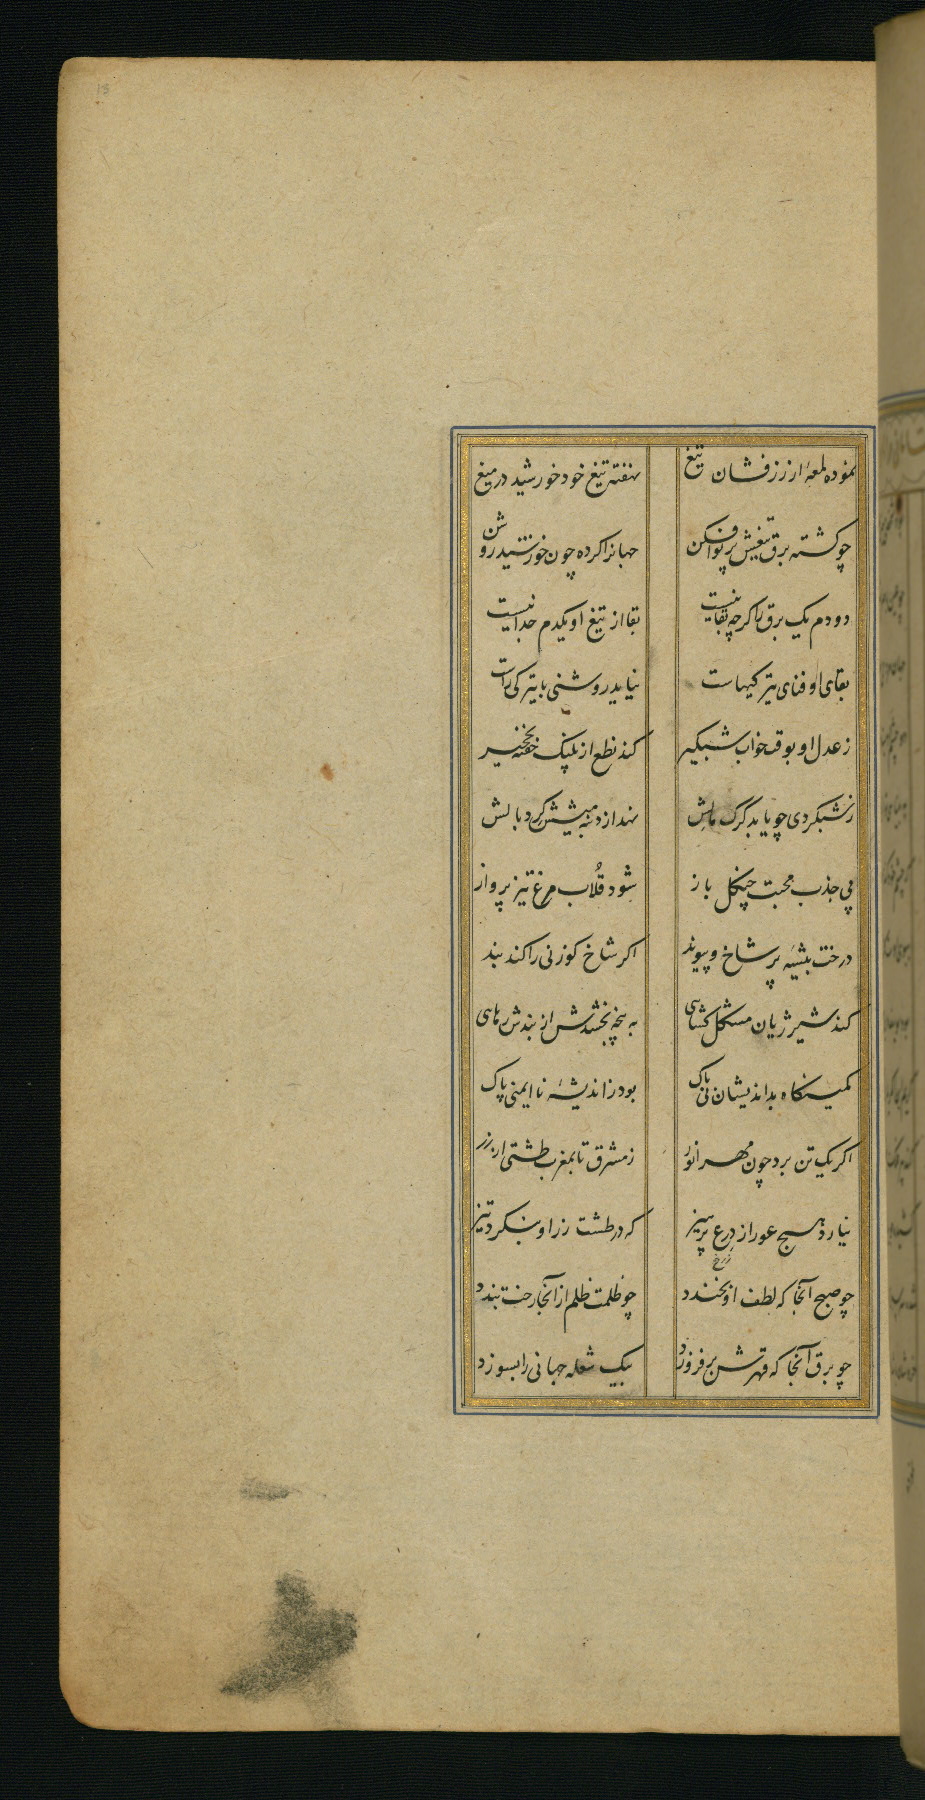 13
نموده لمعهٔ از زرفشان تیغ نهفته تیغ خود خورشید در میغ
چو کشته برق تیغش پرتوافکن جهانرا کرده چون خورشید روشن
دو دم یک برق را کرچه بقا نیست بقا از تیغ او یکدم جدا نیست
بقای او فنای تیرکیهاست نیاید روشنی با تیرکی راست
ز عدل او بوقت خواب شبکیر کند نطع از پلنک خفته نخجیر
ز شبکردی چو یابد کرک مالش نهد از دنبه میشش کرد بالش
پی جذب محبت چنکل باز شود قلاب مرغ تیز پرواز
درخت بیشه پر شاخ و پیوند اکر شاخ کوزنی را کند بند
کند شیر ژیان مشکل کشایی به پنجه بخشدش از بندش رهایی
کمینکاه بداندیشان بی باک بود ز اندیشهٔ نا ایمنی پاک
اکر یک تن برد چون مهر انور ز مشرق تا بمغرب طشتی از زر
نیارد هیچ عور از درع پرهیز که در طشت زر او بنکرد تیز
چو صبح آنجا که لطف او بخندد چو ظلمت ظلم از آنجا رخت بندد
چو برق آنجا که قهرش برفروزد بیک شعله جهانی را بسوزد